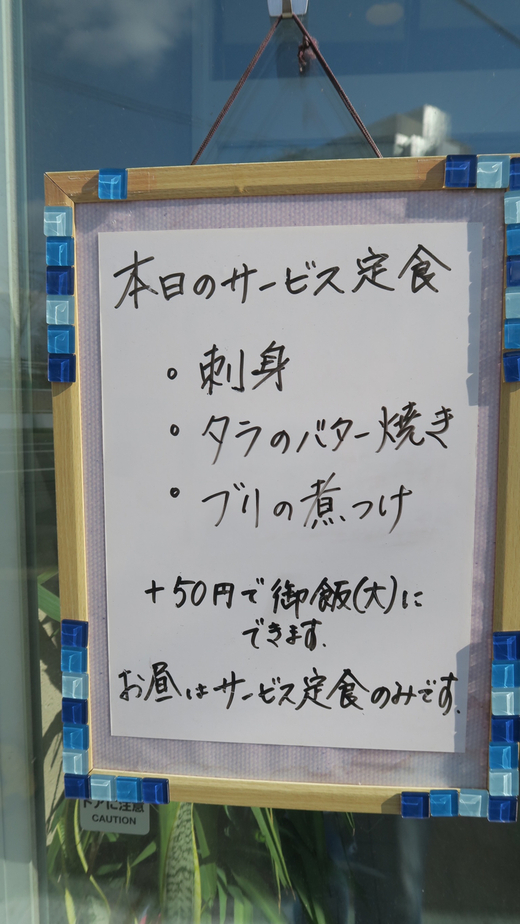 本日のサービス定食
・刺身
・タラのバター焼き
・ブリの煮つけ
+50円で御飯(大)に
できます.
お昼はサービス定食のみです.
ドアに注意
CAUTION